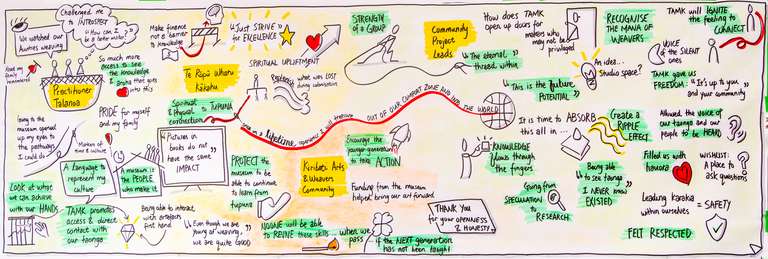 Challenged me
to INTROSPECT
"How can I
be a better weaver"
We watched our
Aunties weaving
So much more
access to see
the knowledge
Practitioner
Talanoa
PRIDE for myself
and my family
Going to the
museum opened
up my eyes to
the pathways
I could do
Matters of
time & culture
A Language to
represent my
culture
A museum is
the PEOPLE
who make it
Look at what
we can achieve
with our HANDS
TAMK promotes
access & direct
contact with
our taonga
Being able to
interact with
first hand
"Even though we are
young at weaving,
we are quite GOOD"
Make finance
not a barrier
to knowledge
"Just STRIVE
for EXCELLENCE"
SPIRITUAL UPLIFTMENT
Te Rōpū
Kākahu
Spiritual
& Physical to TUPUNA
connection
what was LOST
"Pictures in
books do not
have the same
IMPACT"
PROTECT the
museum to be
able to continue
to learn from
tupuna
NOONE will be able
to REVIVE these skills... when we
pass... if the NEXT generation
has not been taught
STRENGTH
of a GROUP
Community
Project
Leads
"The eternal
thread within"
lifetime,
OUT OF OUR COMFORT ZONE AND INTO THE WORLD
Encourage the
younger generation
to take ACTION
Kiribati Arts
& Weavers
Community
Funding from the museum
helped bring our art forward
THANK YOU
for your OPENNESS
& HONESTY
How does TAMK
open up doors for
others who
may not be
privileged
"This is the future
POTENTIAL"
KNOWLEDGE
flows through
the fingers
Going from
SPECULATION to
RESEARCH
RECOGNISE
THE MANA OF
WEAVERS
An idea...
Studio space?
It is time to ABSORB
this all in...
Create a
RIPPLE
EFFECT
Being able
to see taonga
I NEVER knew
EXISTED
TAMK will IGNITE
the feeling to
CONNECT
VOICE OF
THE SILENT
ONES
TAMK gave us
FREEDOM: "It's up to you
and your community"
Allowed the voice of
our taonga and our
people to be HEARD
Filled us with
hauora
WISHLIST:
A place to
ask questions
Leading karakia
within ourselves
= SAFETY
FELT RESPECTED